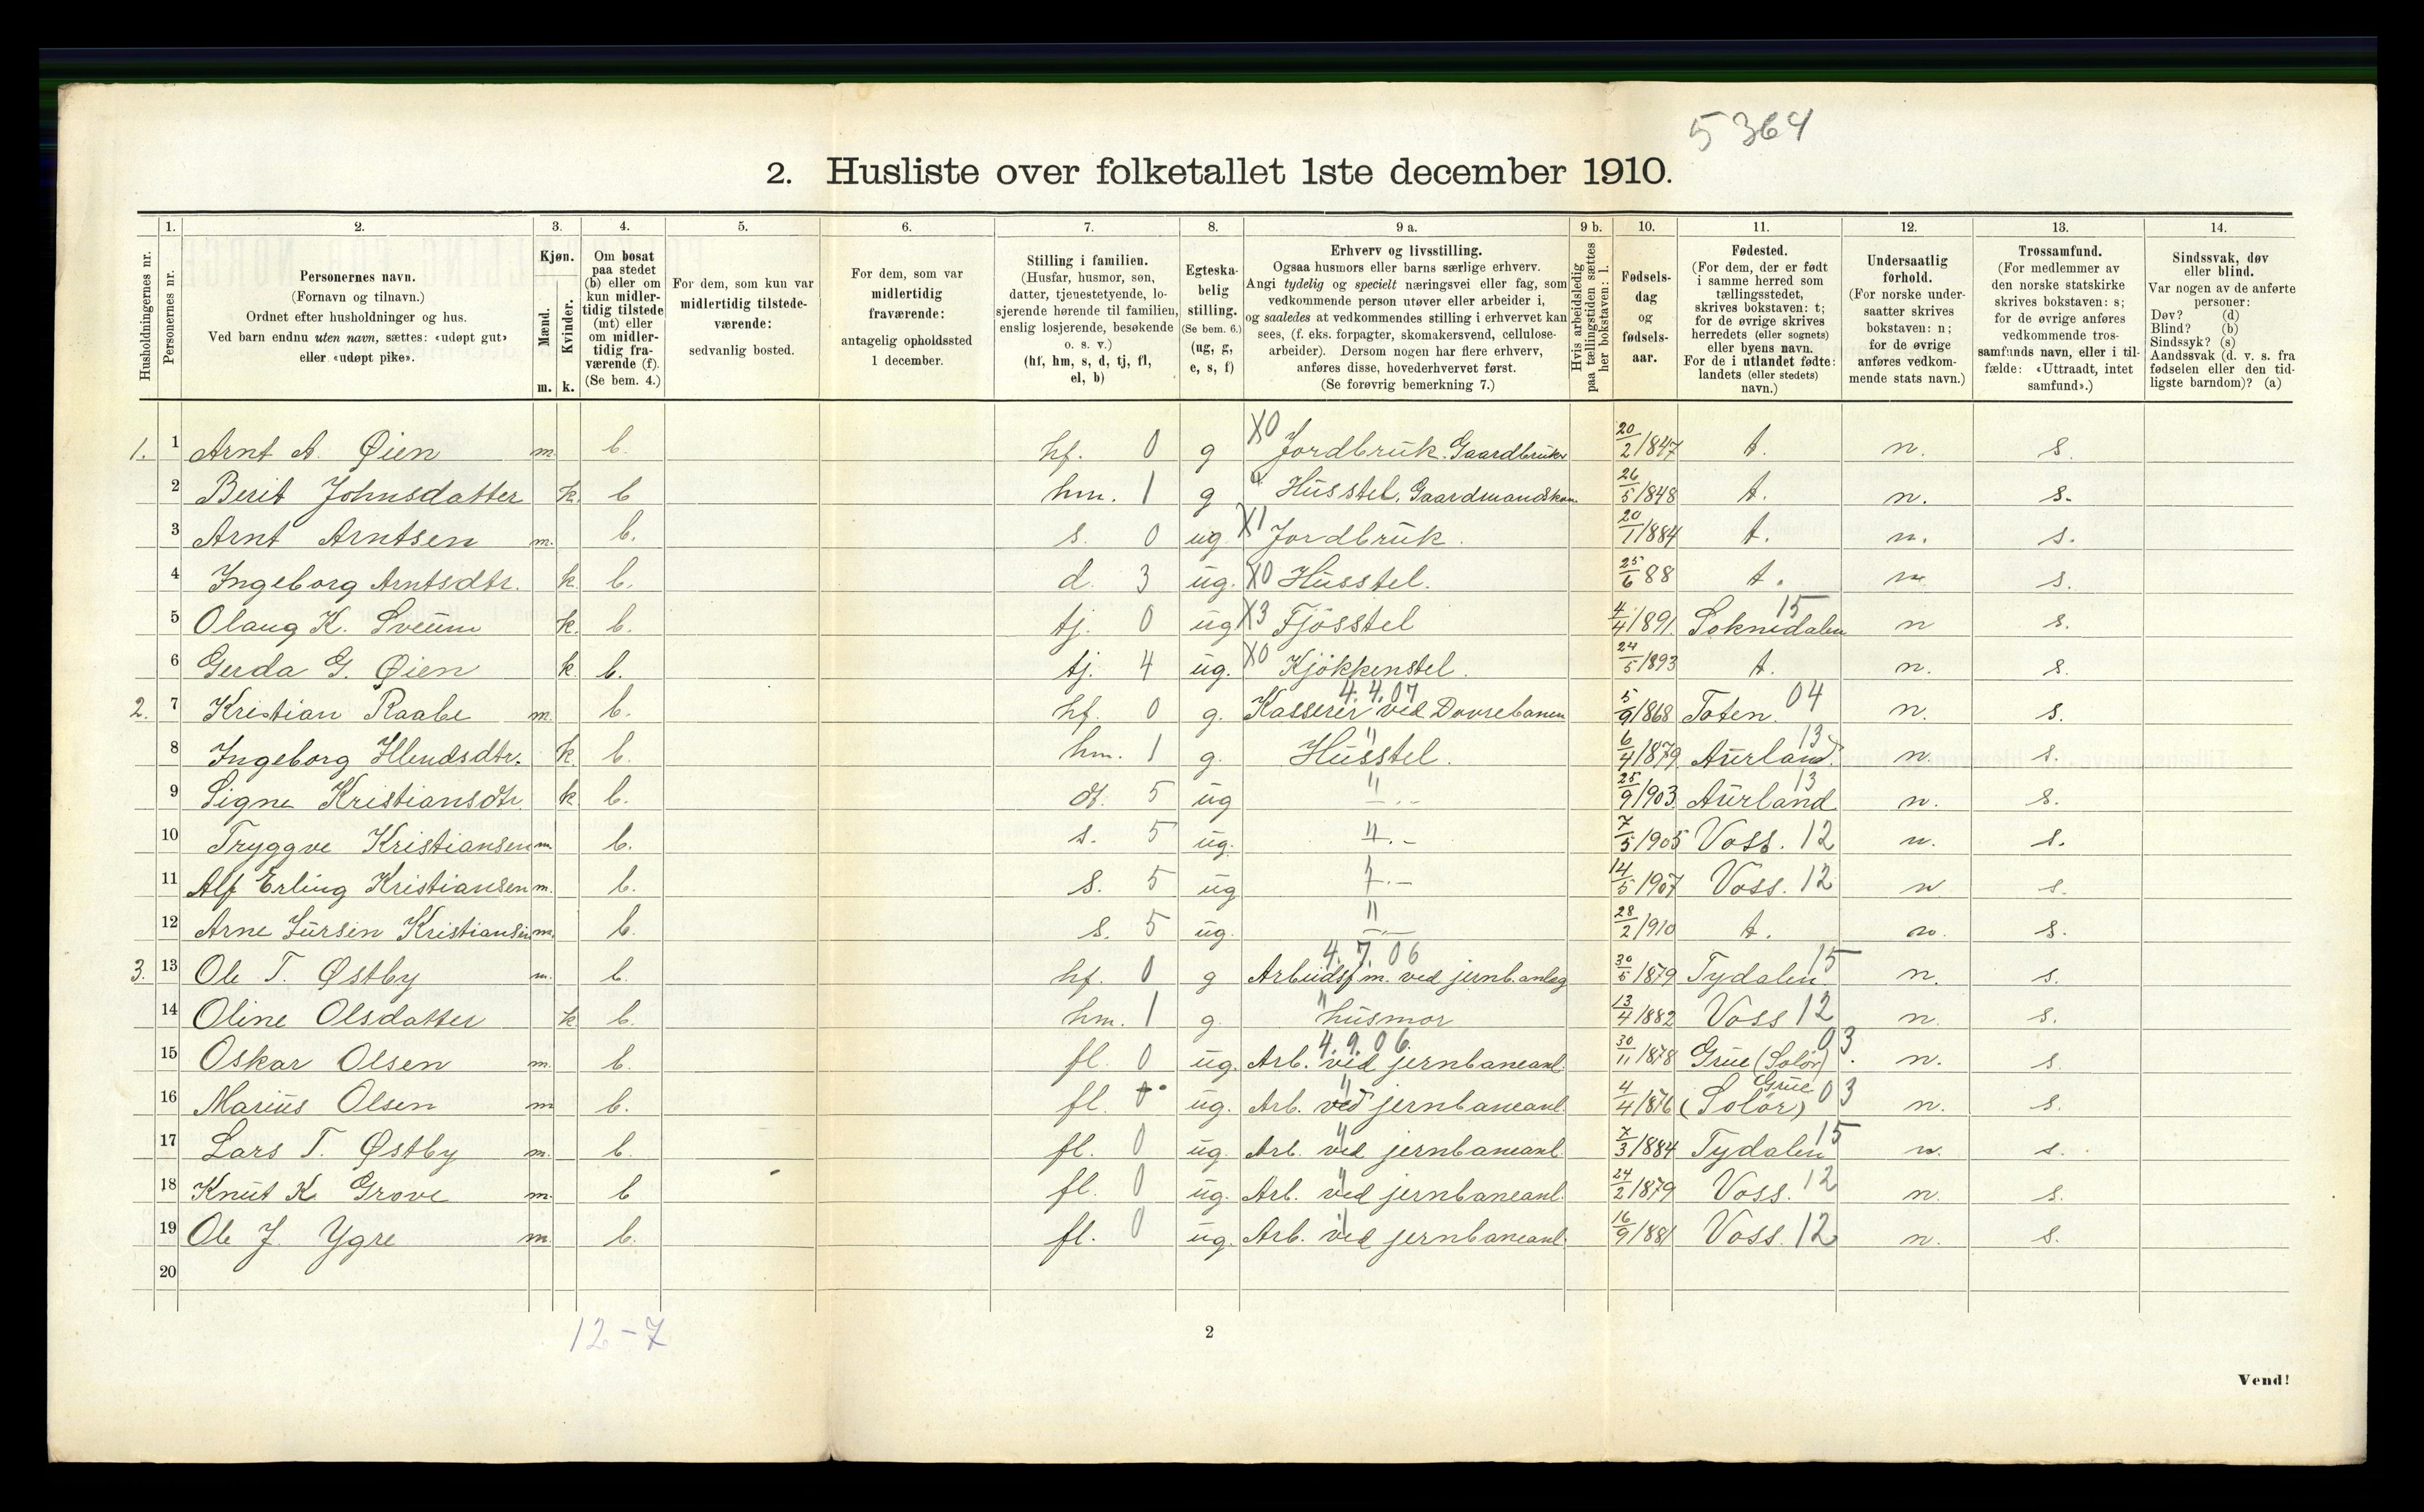 5364
2. Husliste over folketallet 1ste december 1910.
Husholdningernes nr.
1. Personernes nr.
2. Personernes navn. (Fornavn og tilnavn.) Ordnet efter husholdninger og hus. Ved barn endnu uten navn, sættes: «udøpt gut» eller «udøpt pike».
3. Kjøn. Mænd. m. Kvinder. k.
4. Om bosat paa stedet (b) eller om kun midlertidig tilstede (mt) eller om midlertidig fraværende (f). (Se bem. 4.)
5. For dem, som kun var midlertidig tilstedeværende: sedvanlig bosted.
6. For dem, som var midlertidig fraværende: antagelig opholdssted 1 december.
7. Stilling i familien. (Husfar, husmor, søn, datter, tjenestetyende, losjerende hørende til familien, enslig losjerende, besøkende o. s. v.) (hf, hm, s, d, tj, fl, el, b)
8. Egteskabelig stilling. (Se bem. 6.) (ug, g, e, s, f)
9 a. Erhverv og livsstilling. Ogsaa husmors eller barns særlige erhverv. Angi tydelig og specielt næringsvei eller fag, som vedkommende person utøver eller arbeider i, og saaledes at vedkommendes stilling i erhvervet kan sees, (f. eks. forpagter, skomakersvend, cellulosearbeider). Dersom nogen har flere erhverv, anføres disse, hovederhvervet først. (Se forøvrig bemerkning 7.)
9 b. Hvis arbeidsledig paa tællingstiden sættes her bokstaven: l.
10. Fødselsdag og fødselsaar.
11. Fødested. (For dem, der er født i samme herred som tællingsstedet, skrives bokstaven: t; for de øvrige skrives herredets (eller sognets) eller byens navn. For de i utlandet fødte: landets (eller stedets) navn.)
12. Undersaatlig forhold. (For norske undersaatter skrives bokstaven: n; for de øvrige anføres vedkommende stats navn.)
13. Trossamfund. (For medlemmer av den norske statskirke skrives bokstaven: s; for de øvrige anføres vedkommende trossamfunds navn, eller i tilfælde: «Uttraadt, intet samfund».)
14. Sindssvak, døv eller blind. Var nogen av de anførte personer: Døv? (d) Blind? (b) Sindssyk? (s) Aandssvak (d. v. s. fra fødselen eller den tidligste barndom)? (a)
1. 1 Arnt A. Øien m. b. hf. 0 g X0 Jordbruk. Gaardbruker 20/2 1847 t. n. s.
2 Berit Johnsdatter k. b hm. 1 g " Husstel, Gaardmandskone 26/5 1848 t. n. s.
3 Arnt Arntsen m. b. s. 0 ug X1 Jordbruk. 20/1 1884 t. n. s.
4 Ingeborg Arntsdtr. k. b. d. 3 ug. X0 Husstel. 25/6 88 t. n s.
5 Olaug K. Sveum k. b. tj. 0 ug X3 Fjøsstel 4/4 1891. Soknedalen 15 n s.
6 Gerda G. Øien k. b. tj. 4 ug. X0 Kjøkkenstel. 24/5 1893 t. n. s.
2. 7 Kristian Raabe m. b. hf. 0 g. 4.4.07 Kasserer ved Dovrebanen 5/9 1868 Toten. 04 n. s.
8 Ingeborg dtr. k. b. hm. 1 g. " Husstel. 6/4 1879 Aurland. 13 n. s.
9 Signe Kristiansdtr. k b. dt. 5 ug " 25/9 1903 Aurland 13 n. s.
10 Tryggve Kristiansen m. b. s. 5 ug. " 7/5 1905 Voss. 12 n. s.
11 Alf Erling Kristiansen m. b. s. 5 ug 14/5 1907 Voss. 12 n s.
12 Arne Kristiansen m. b. s. 5 ug. " 28/2 1910 t. n. s.
3. 13 Ole T. Østby m. b. hf. 0 g 4.7.06 Arbeidsfm. ved jernb.anleg 30/5 1879 Tydalen. 15 n. s.
14 Oline Olsdatter k b. hm. 1 g. " husmor 13/4 1882 Voss 12 n. s.
15 Oskar Olsen m. b. fl. 0 ug. 4.9.06. Arb. ved jernbaneanl. 30/11 1878 Grue (Solør) 03. n. s.
16 Marius Olsen m b. fl. ug. " Arb. ved jernbaneanl. 4/4 1876 Grue (Solør) 03 n. s.
17 Lars T. Østby m. b. fl. 0 ug. " Arb. ved jernbaneanl. 7/3 1884 Tydalen 15 n. s.
18 Knut K. Grove m. b fl. 0 ug. " Arb. ved jernbaneanl. 24/2 1879 Voss. 12 n. s.
19 Ole J. Ygre m. b. fl. 0 ug. " Arb. ved jernbaneanl. 16/9 1881 Voss. 12 n. s.
20
12-7
2
Vend!